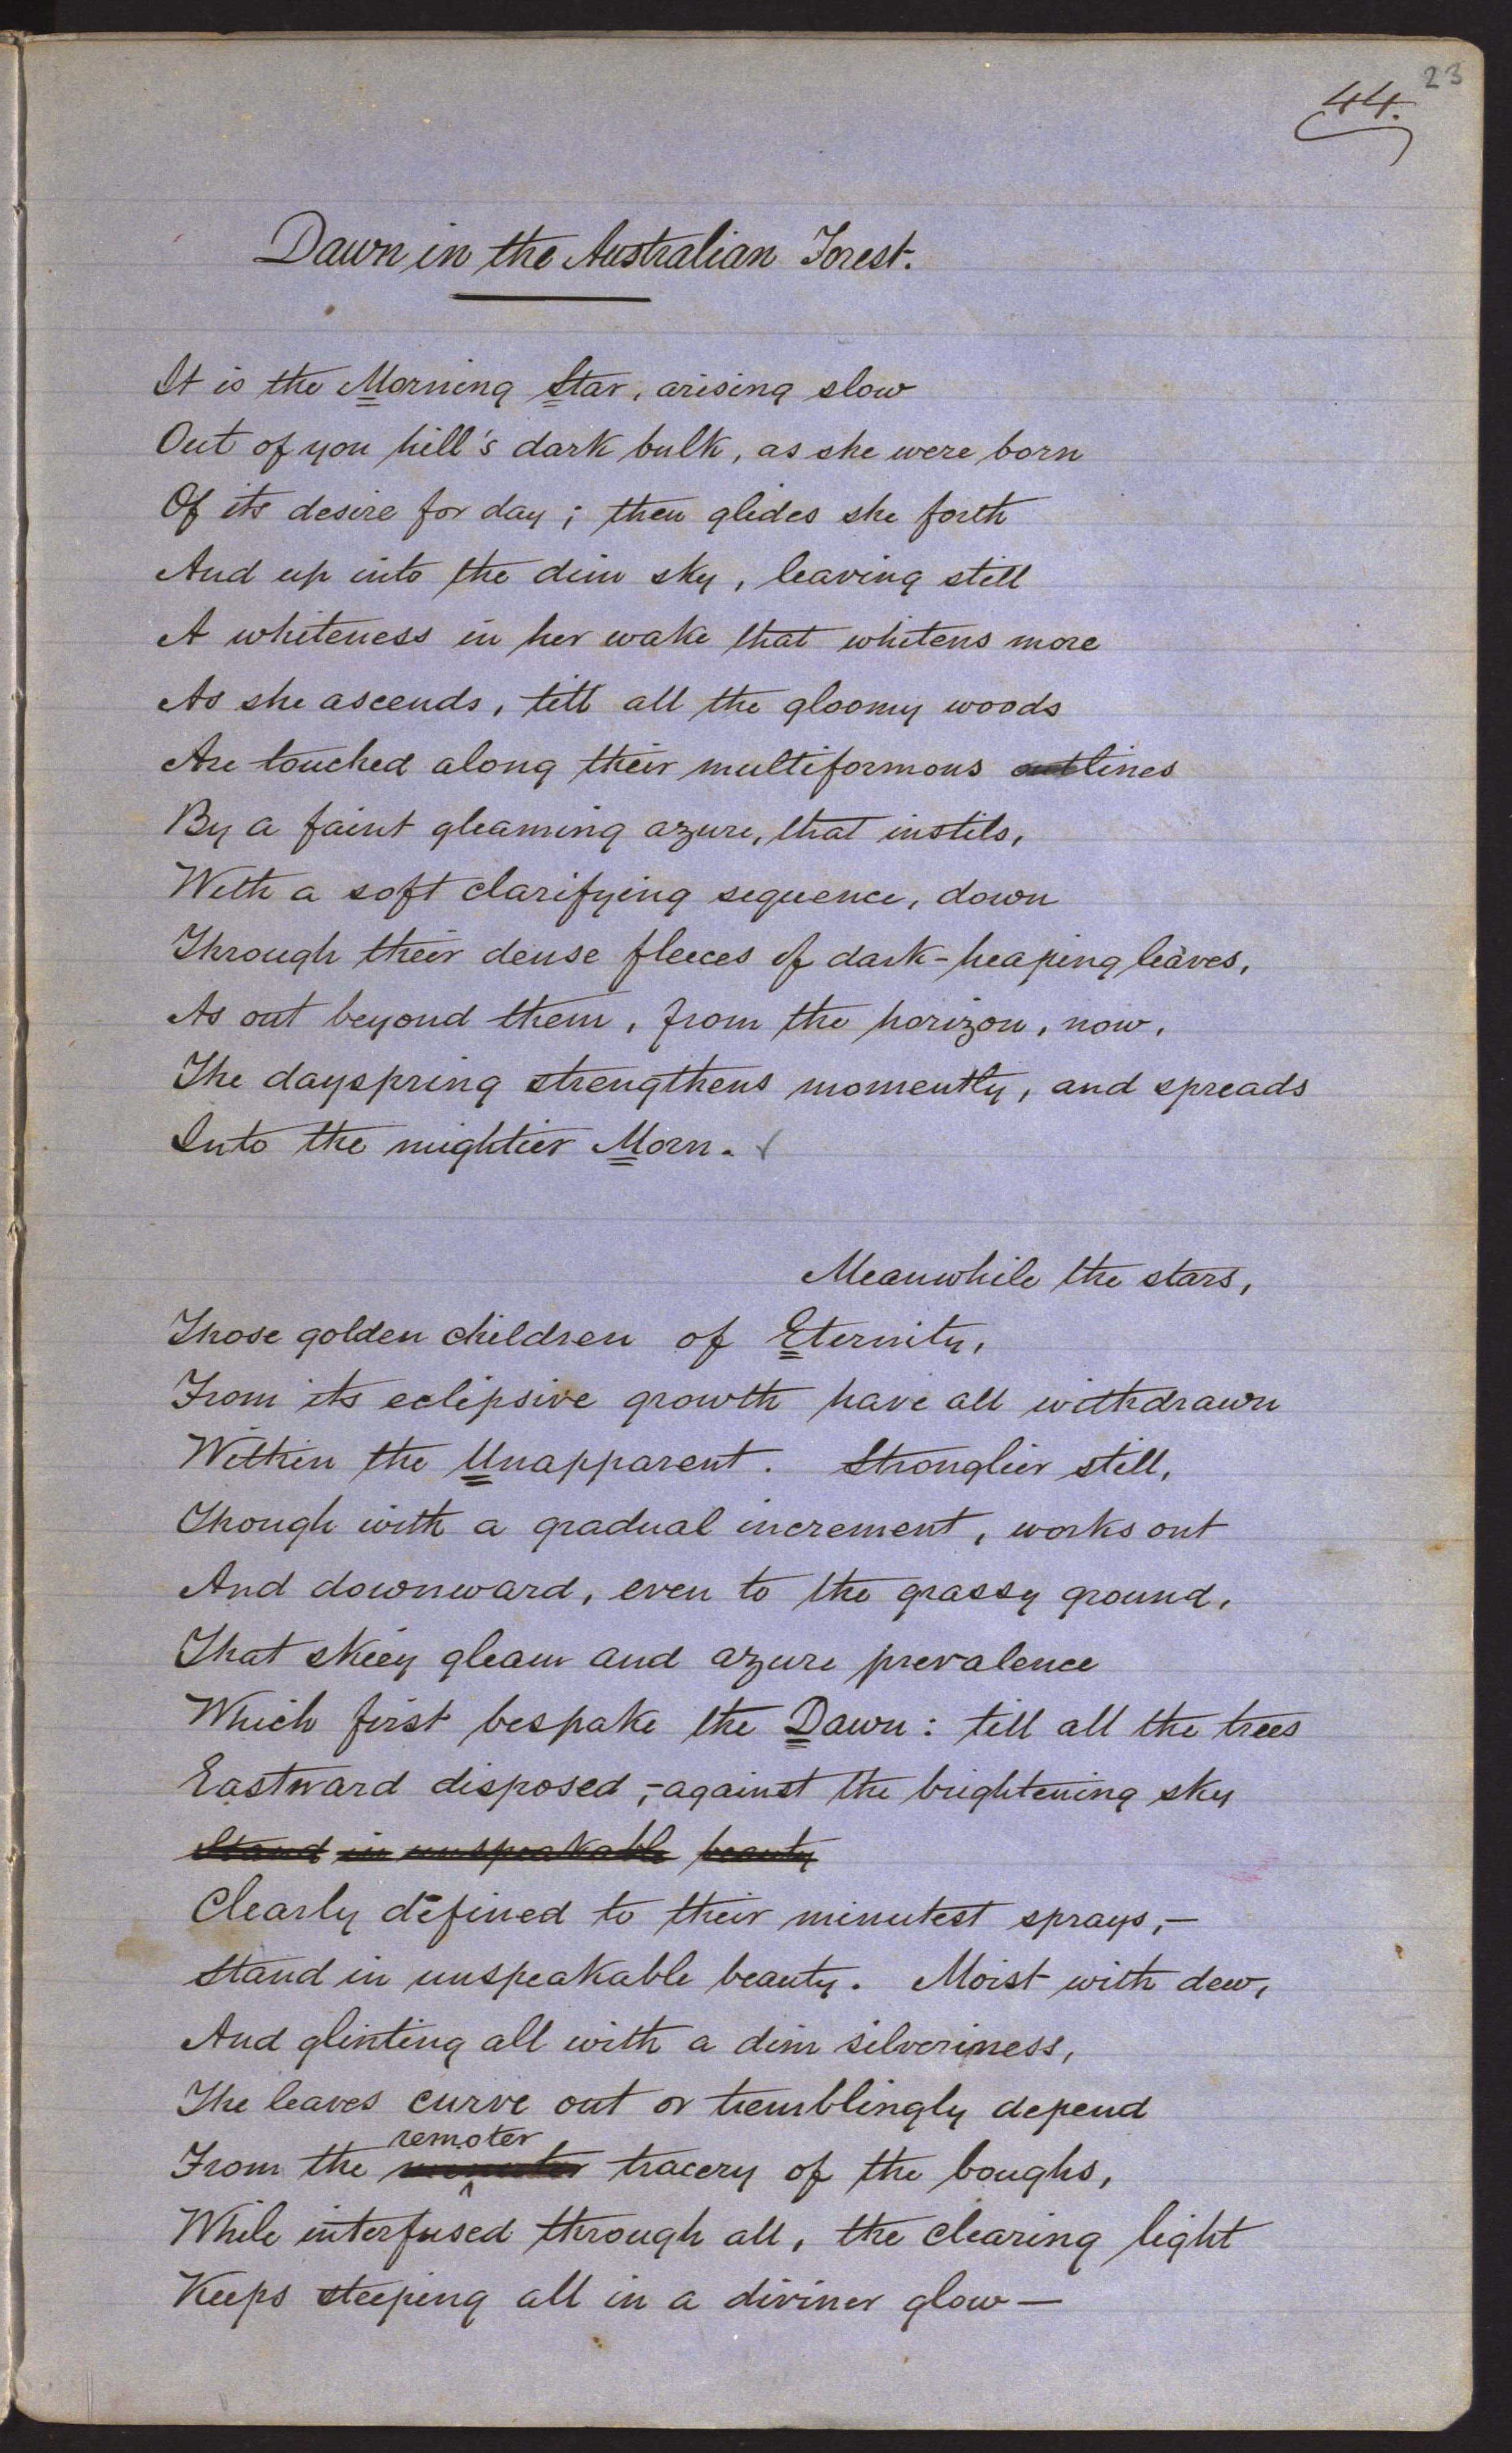 23
44.
Dawn in the Australian Forest.
It is the Morning Star, arising slow
Out of yon hill's dark bulk, as she were born
Of its desire for day; then glides she forth
And up into the dim sky, leaving still
A whiteness in her wake that whitens more
As she ascends, till all the gloomy woods
Are touched along their multiformous outlines
By a faint gleaming azure, that instils,
With a soft clarifying sequence, down
Through their dense fleeces of dark-heaping leaves,
As out beyond them, from the horizon, now,
The dayspring strengthens momently, and spreads
Into the mightier Morn. ✓
Meanwhile the stars,
Those golden children of Eternity,
From its eclipsive growth have all withdrawn
Within the Unapparent. Stronglier still,
Though with a gradual increment, works out
And downward, even to the grassy ground,
That skiey gleam and azure prevalence
Which first bespake the Dawn: till all the trees
Eastward disposed,—against the brightening sky
Stand in unspeakable beauty
Clearly defined to their minutest sprays,—
Stand in unspeakable beauty. Moist with dew,
And glinting all with a dim silveriness,
The leaves curve out or tremblingly depend
remoter
From the tracery of the boughs,
While interfused through all, the clearing light
Keeps steeping all in a diviner glow—